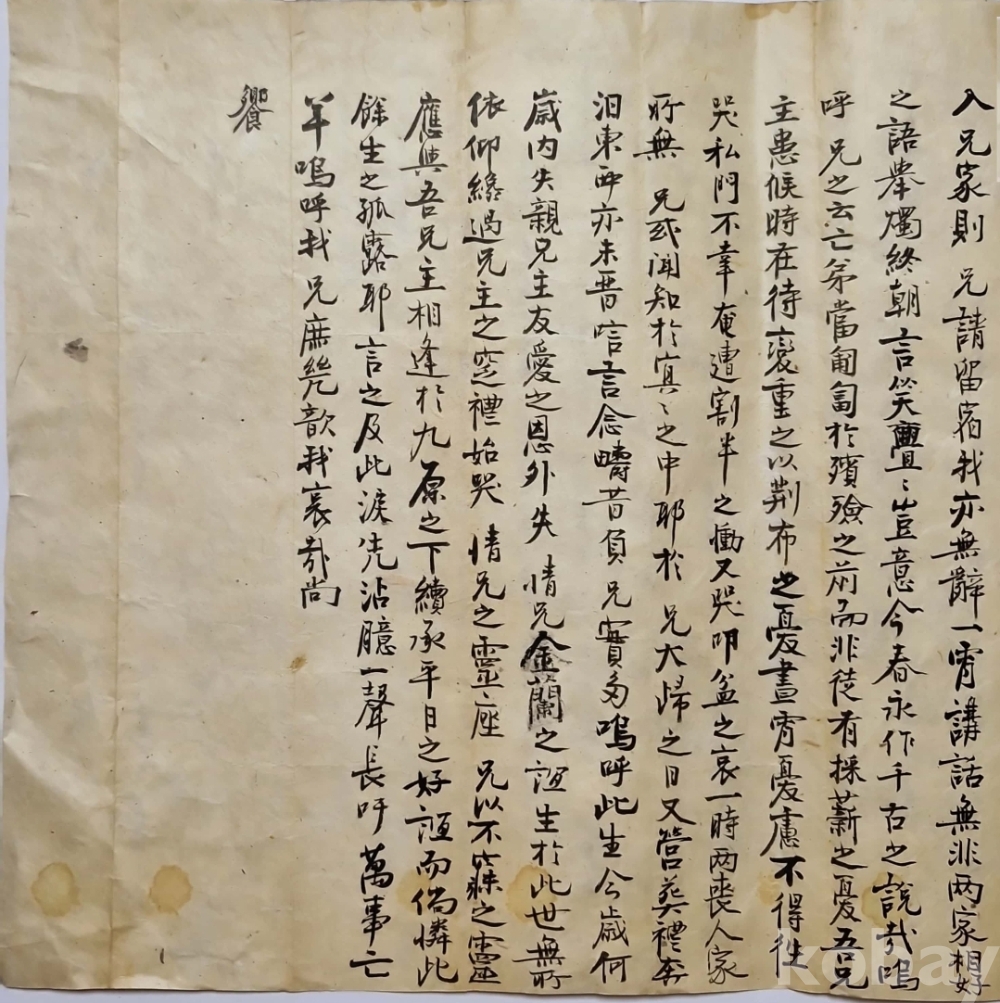 入兄家則 兄請留宿我亦無辭一宵講話無非兩家相好
之語擧燭終朝言笑亹〻豈意今春永作千古之說哉嗚
呼 兄之云亡弟當匍匐於殯殮之前而非徒有採薪之憂吾兄
主患候時在待変重之以荊布之憂晝宵憂慮不得往
哭私門不幸奄遭割半之慟又哭叩盆之哀一時兩喪人家
所無 兄或聞知於冥〻之中耶於 兄大歸之日又營葬禮奔
汨東西亦未晋唁言念疇昔負兄實多嗚呼此生今歲何
歲內失親兄主友愛之恩外失 情兄金蘭之誼生於此世無所
依仰纔過兄主之窆禮始哭 情兄之靈座 兄以不寐之靈
應與吾兄主相逢於九原之下續承平日之好誼而倘憐此
餘生之孤露耶 言之及此淚先沾臆一聲長吁萬事亡
羊嗚呼哉 兄庶幾歆我哀哉尚
饗
kobay